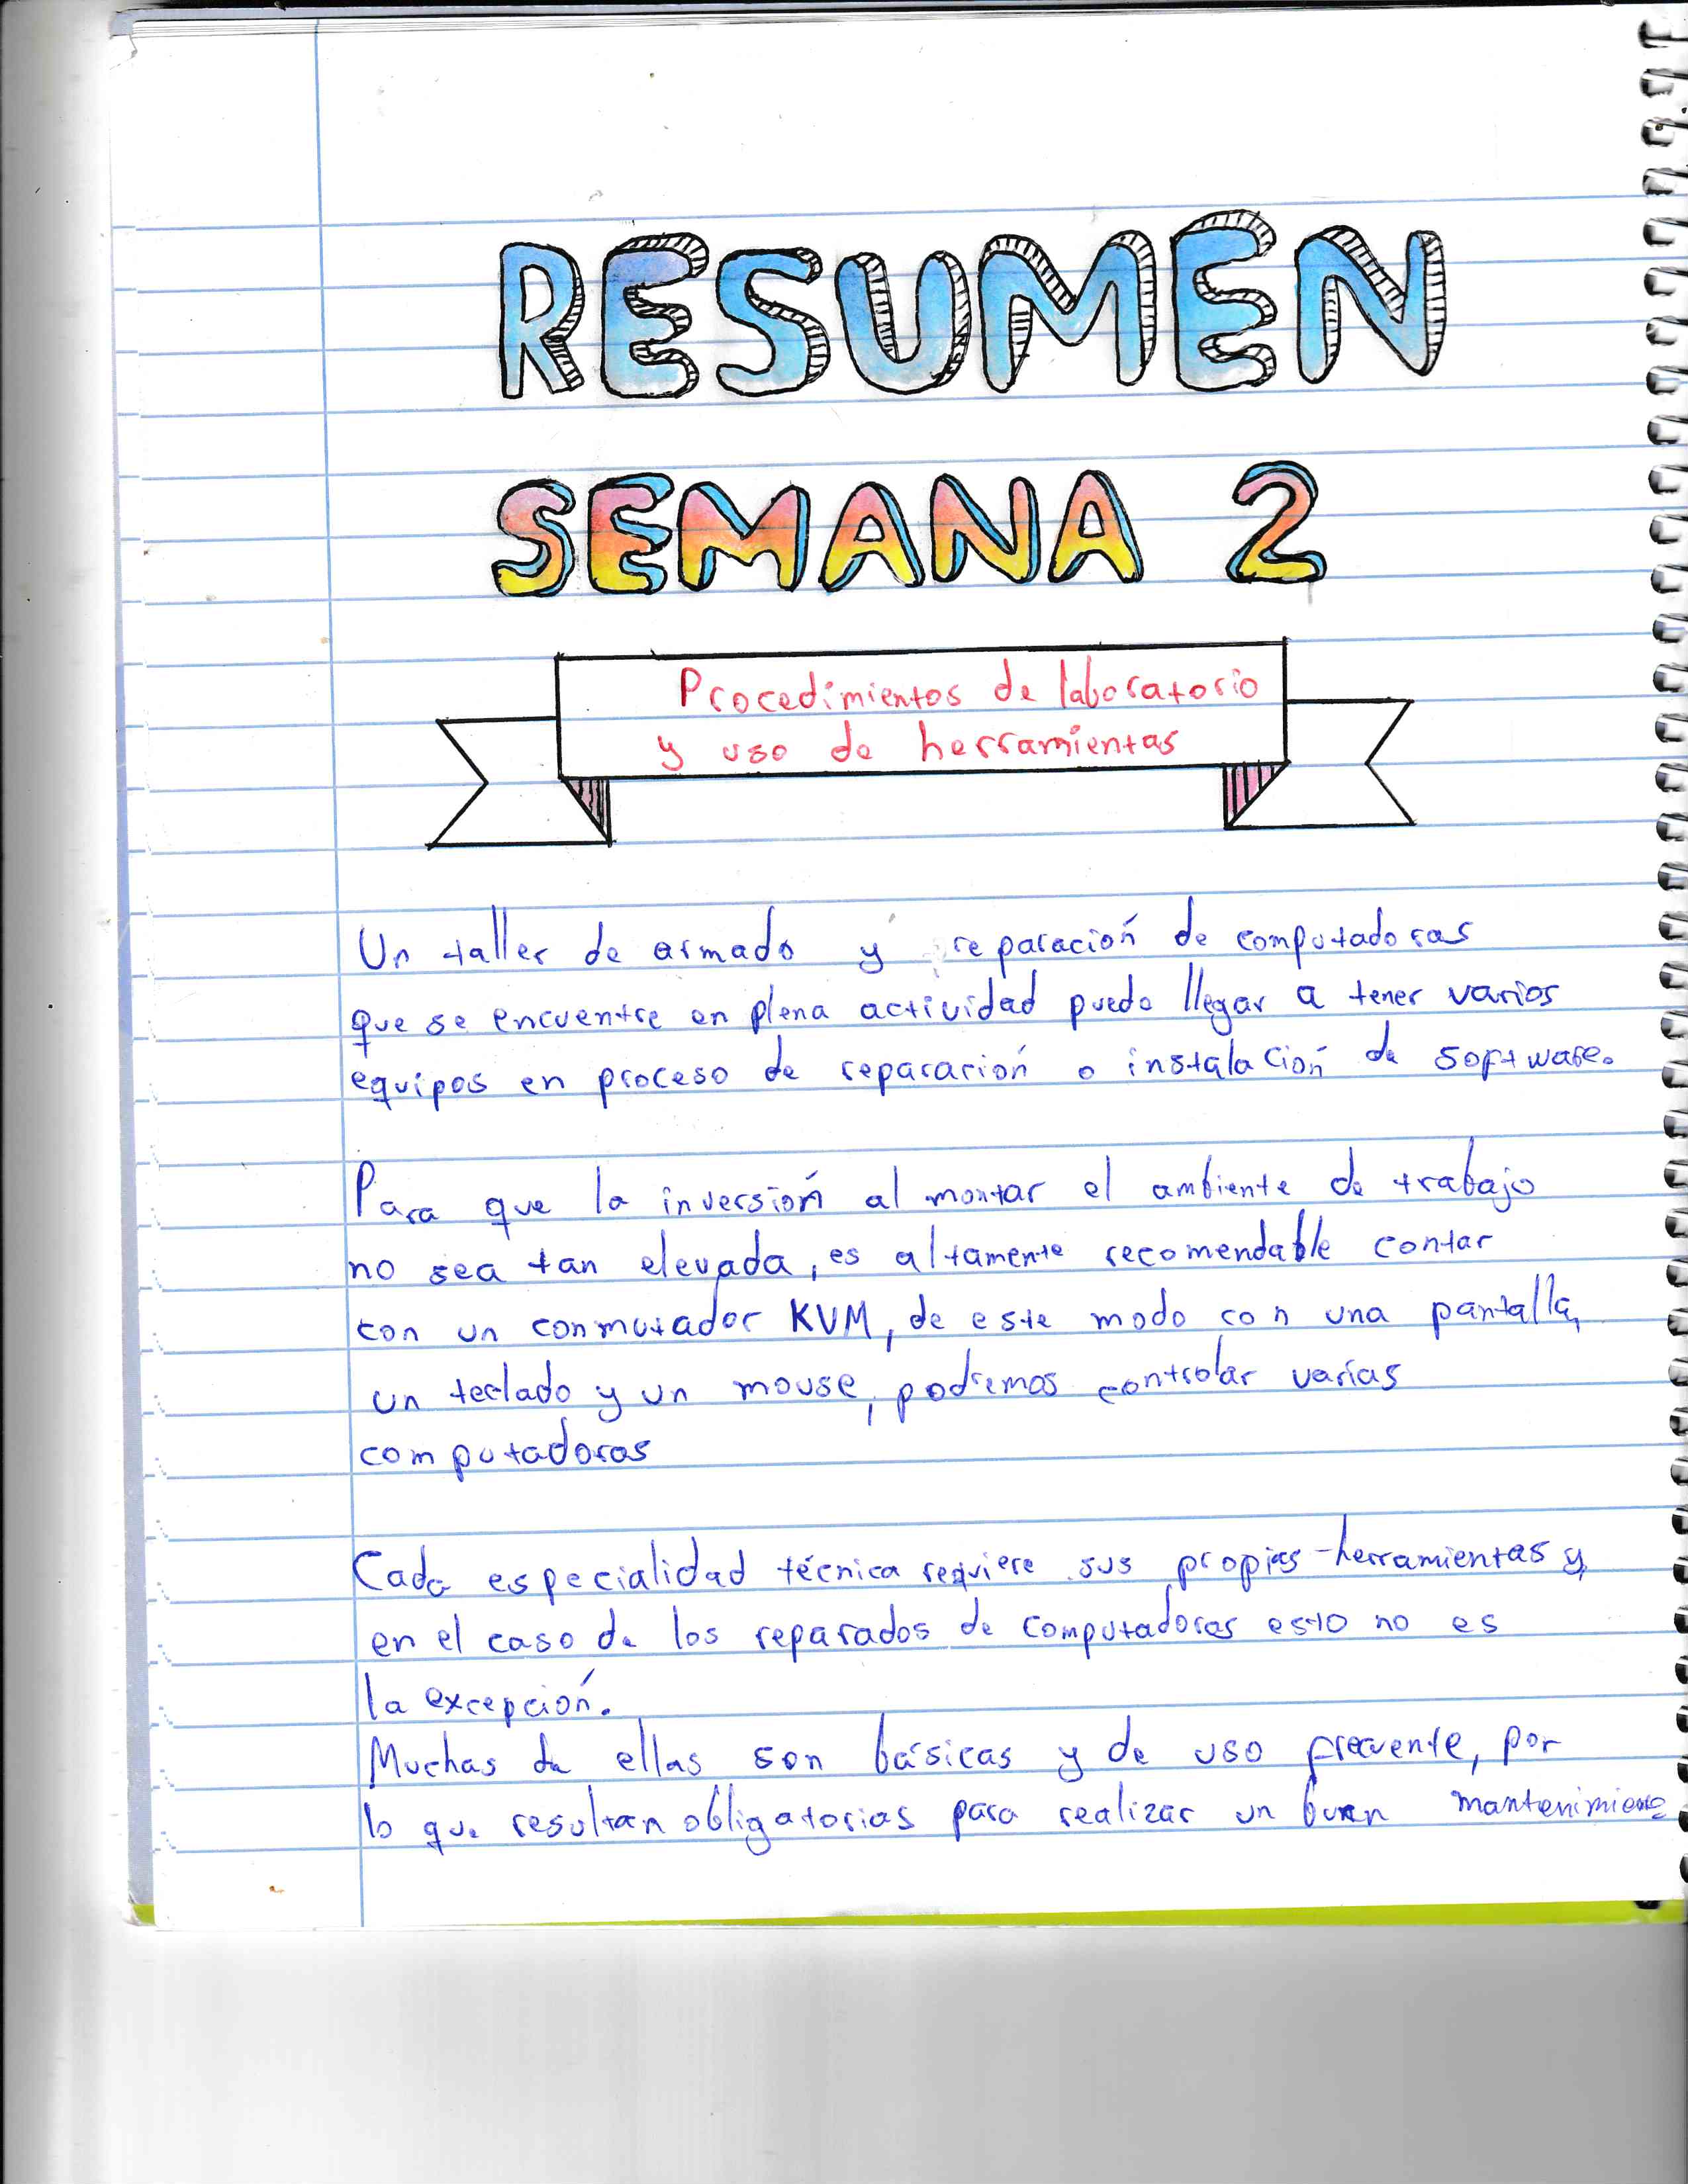 RESUMEN
SEMANA 2
Procedimientos de laboratorio
y uso de herramientas
Un taller de armado y reparación de computadoras
que se encuentre en plena actividad puede llegar a tener varios
equipos en proceso de reparación o instalación de software.
Para que la inversión al montar el ambiente de trabajo
no sea tan elevada, es altamente recomendable contar
con un conmutador KVM, de este modo con una pantalla,
un teclado y un mouse, podremos controlar varias
computadoras
Cada especialidad técnica requiere sus propias herramientas y
en el caso de los reparados de computadoras esto no es
la excepción.
Muchas de ellas son básicas y de uso frecuente, por
lo que resultan obligatorias para realizar un buen mantenimiento